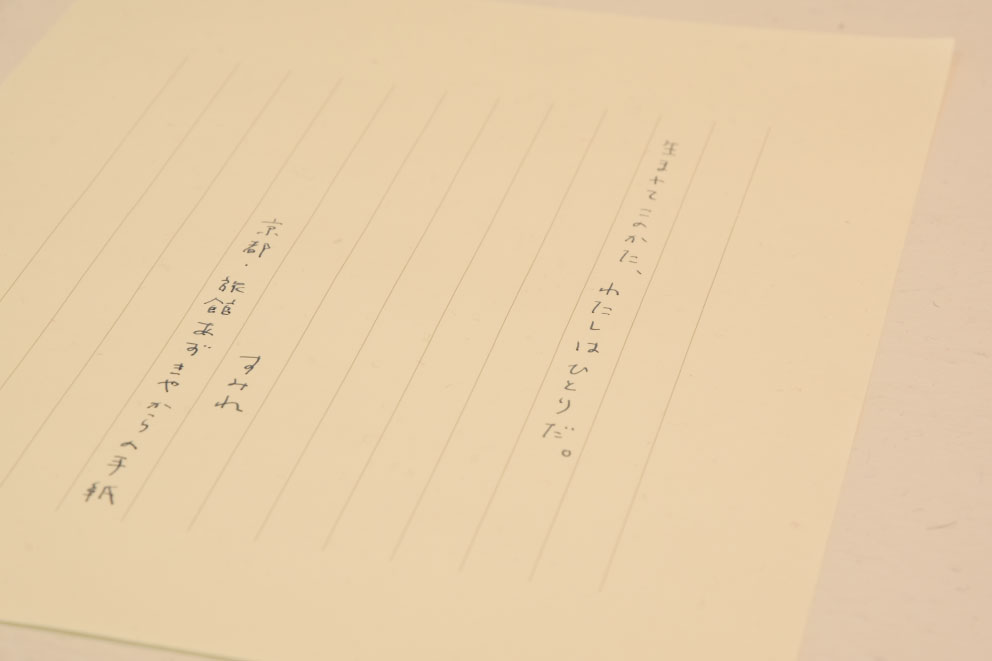 生まれてこのかた、わたしはひとりだ。
すみれ
京都・旅館あずきやからの手紙